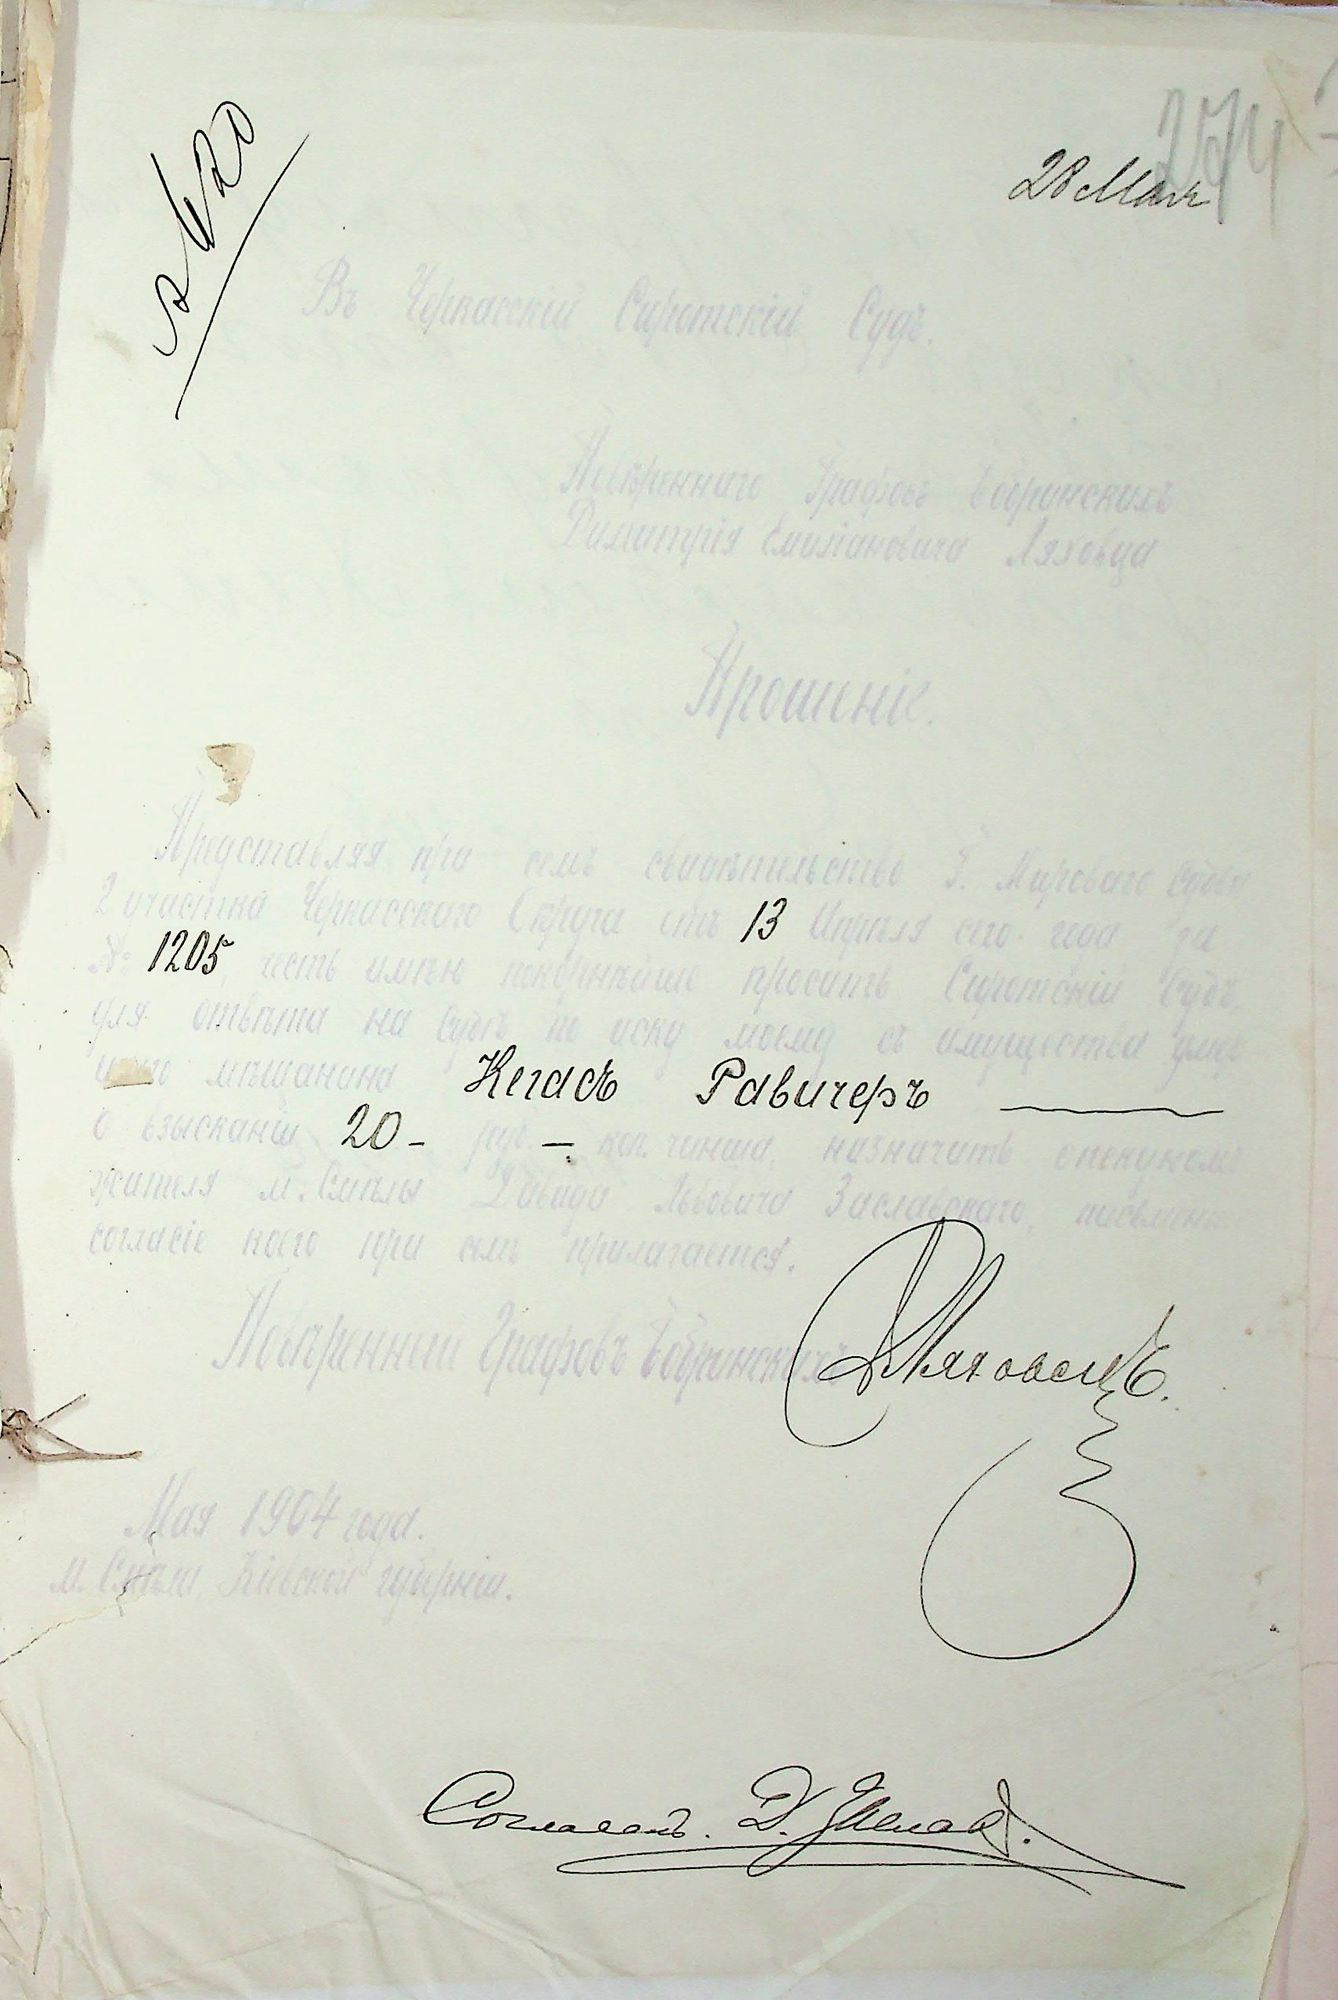 № 420
274
28 Мая
Въ Черкасскій Сиротскій Судъ.
Повѣреннаго Графовъ Бобринскихъ
Димитрія Емиліановича Ляховца
Прошеніе.
Представляя при семъ свидѣтельство Г. Мирового Судьи
2 участка Черкасскаго Округа отъ 13 Апрѣля сего года за
№ 1205, честь имѣю покорнѣйше просить Сиротскій Судъ,
для отвѣта на Судѣ по иску моему съ имущества умер
шаго мѣщанина Кегасъ Равичеръ
о взысканіи 20 - руб. - коп. чинша, назначить опекуномъ
жителя м. Смѣлы Давида Львовича Заславскаго, письменное
согласіе коего при семъ прилагается.
Повѣренный Графовъ Бобринскихъ Д. Ляховецъ.
Мая 1904 года.
м. Смѣла, Кіевской губерніи.
Согласенъ. Д. Заслав.